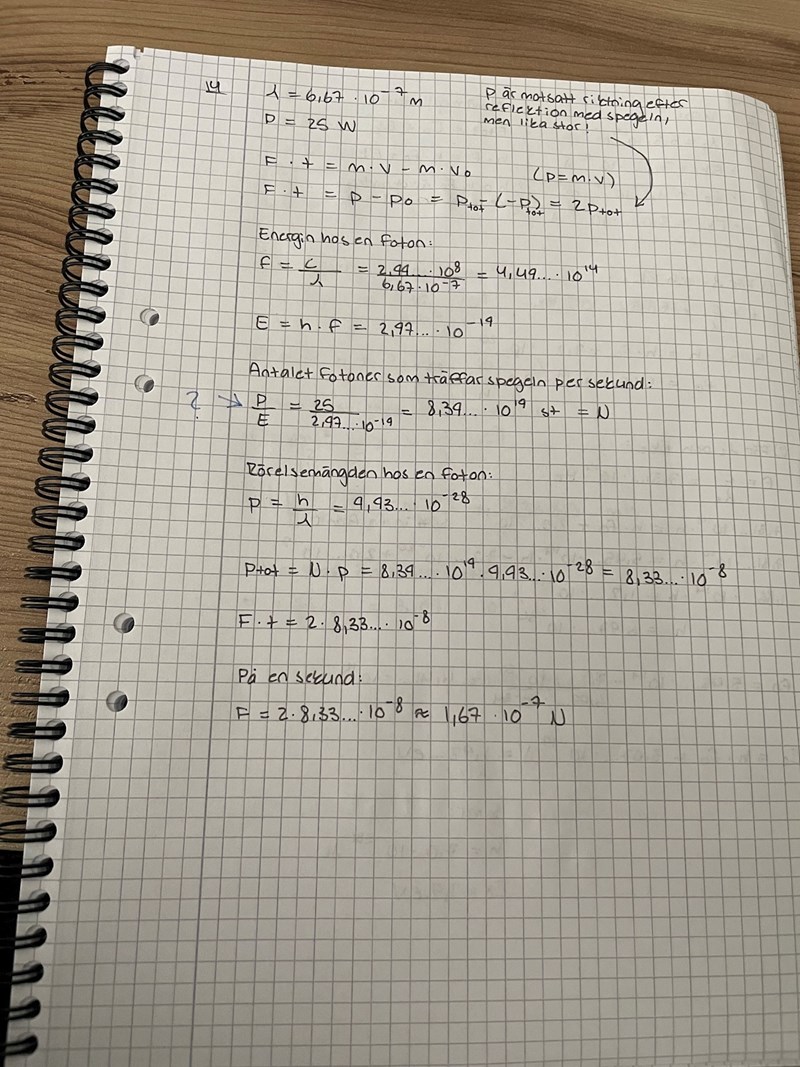 14
λ = 6,67 · 10⁻⁷ m
P = 25 W
p är motsatt riktning efter
reflektion med spegeln,
men lika stor!
F · t = m · v - m · v₀ (p = m · v)
F · t = p - p₀ = p_tot - (-p_tot) = 2p_tot
Energin hos en foton:
f = c/λ = 2,99... · 10⁸ / 6,67 · 10⁻⁷ = 4,49... · 10¹⁴
E = h · f = 2,97... · 10⁻¹⁹
Antalet fotoner som träffar spegeln per sekund:
? → P/E = 25 / 2,97... · 10⁻¹⁹ = 8,39... · 10¹⁹ st = N
Rörelsemängden hos en foton:
p = h/λ = 9,93... · 10⁻²⁸
p_tot = N · p = 8,39... · 10¹⁹ · 9,93... · 10⁻²⁸ = 8,33... · 10⁻⁸
F · t = 2 · 8,33... · 10⁻⁸
På en sekund:
F = 2 · 8,33... · 10⁻⁸ ≈ 1,67 · 10⁻⁷ N